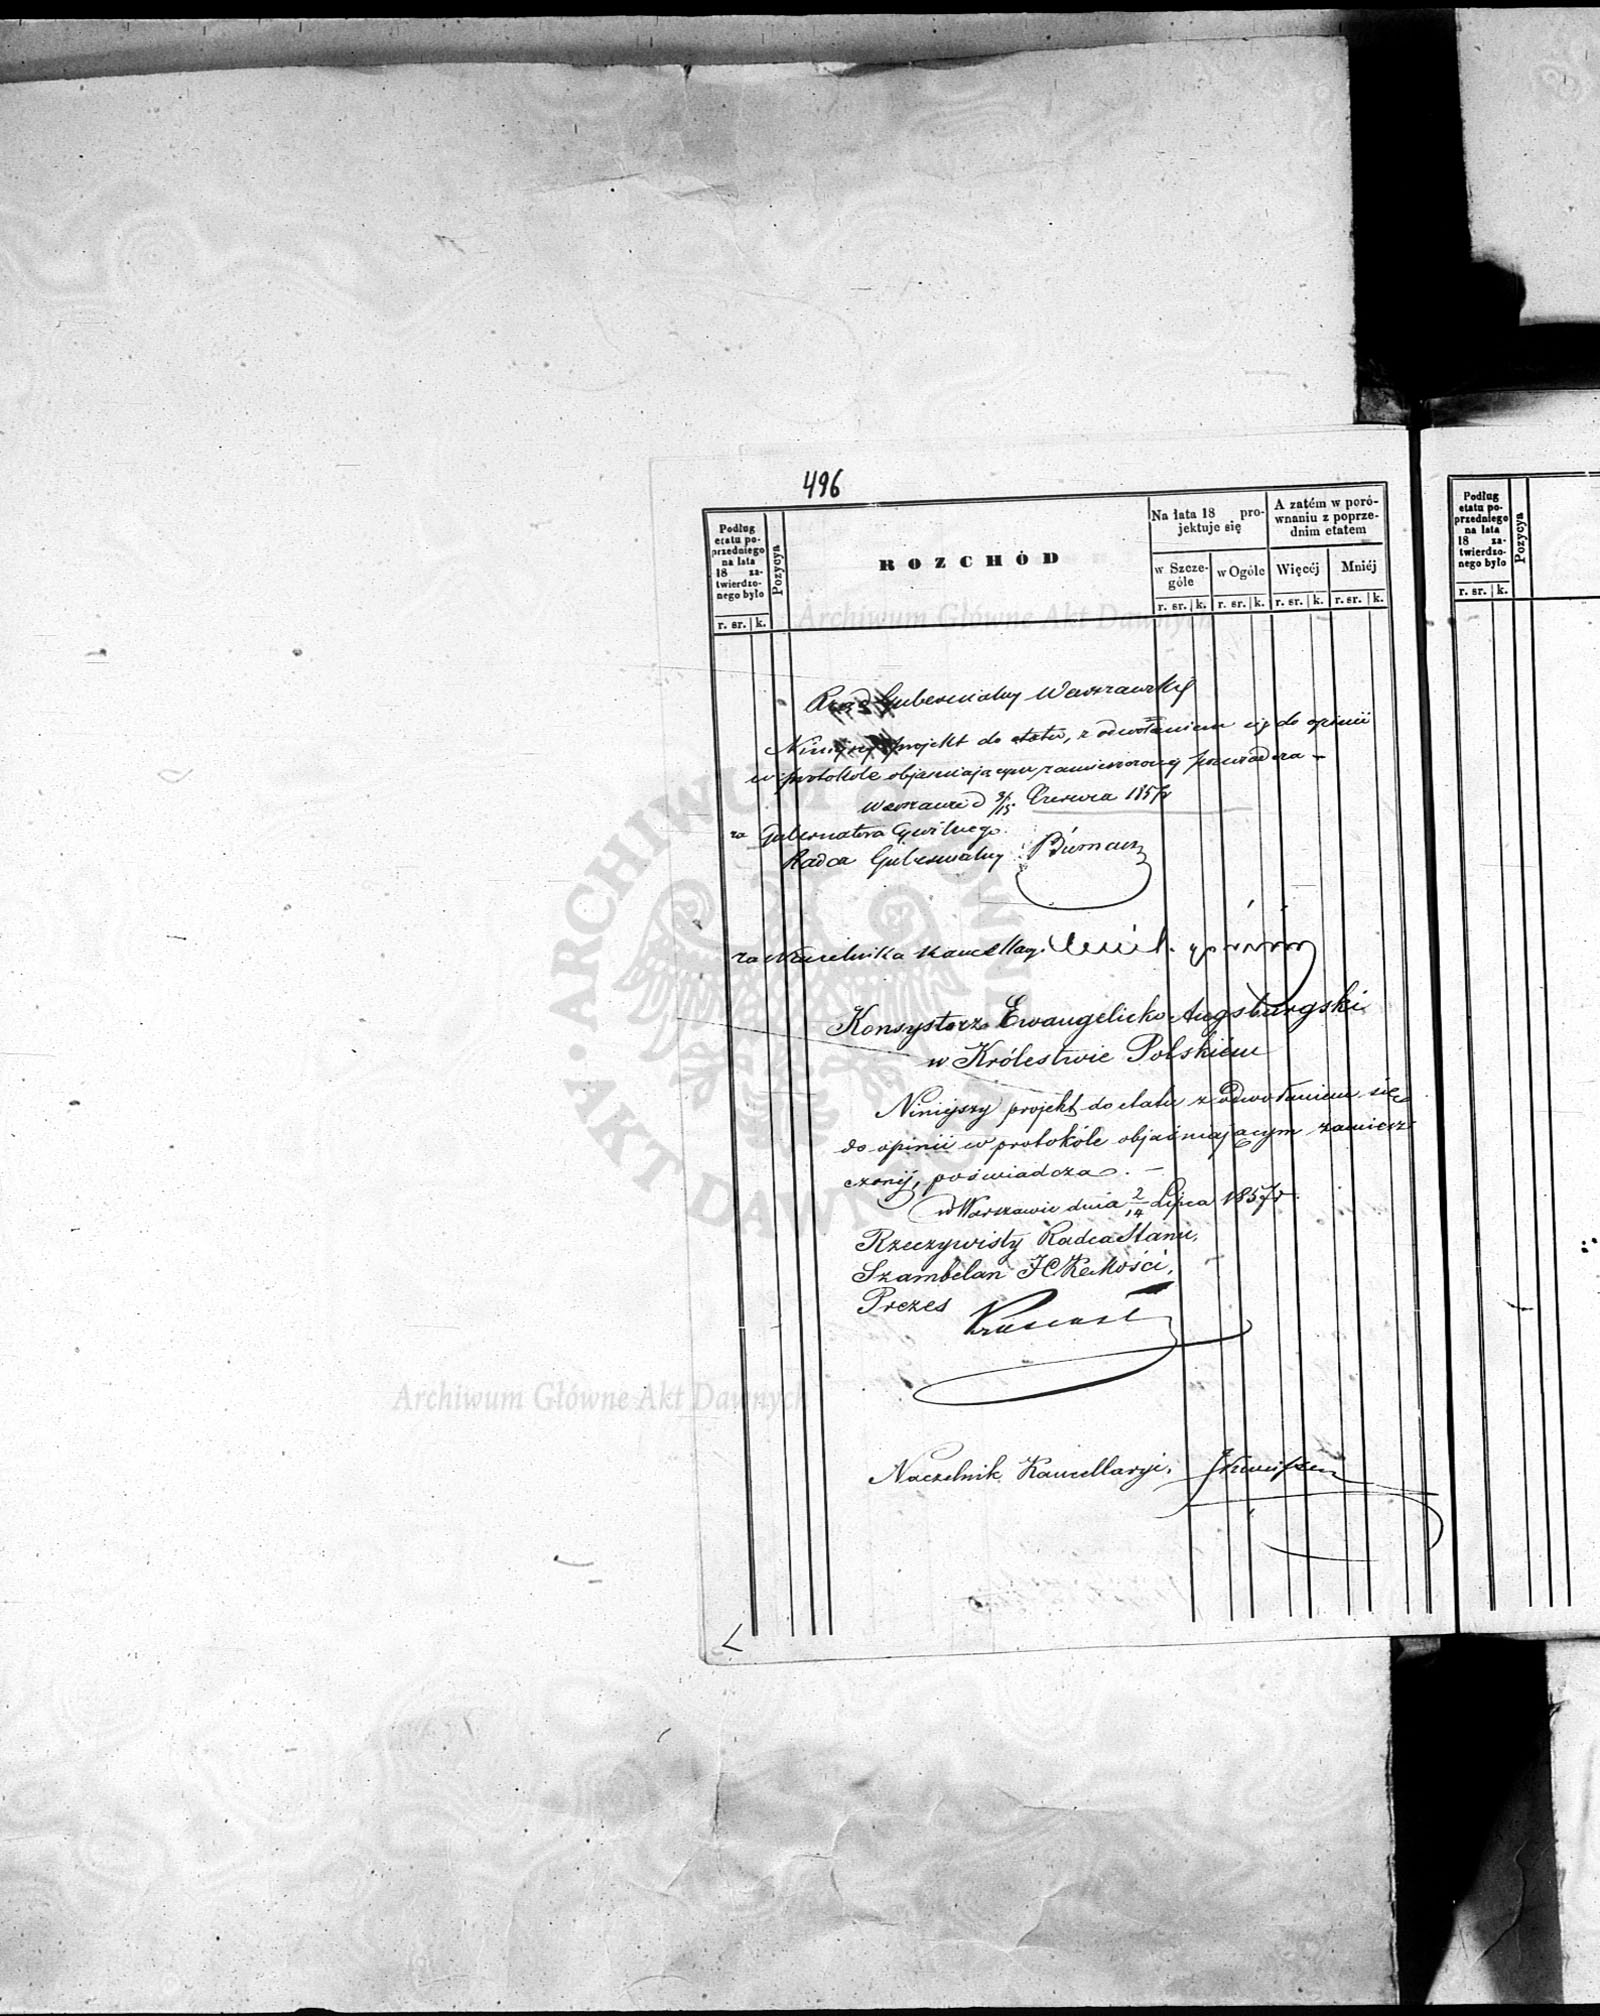 496
Podług etatu poprzedniego na lata 18 zatwierdzonego było
Pozycya
ROZCHÓD
Na lata 18 projektuje się
A zatém w porównaniu z poprzednim etatem
w Szczególe
w Ogóle
Więcéj
Mniéj
r. sr. k. r. sr. k. r. sr. k. r. sr. k. r. sr. k.
Rząd Gubernialny Warszawski
Niniejszy projekt do etatu, z odwołaniem się do opinii
w protokole objaśniającym zamieszczonej poświadcza –
Warszawa d Czerwca 1857 r
za Gubernatora Cywilnego.
Radca Gubernialny
za Naczelnika Kancellaryi
Konsystorz Ewangelicko-Augsburgski
w Królestwie Polskiém
Niniejszy projekt do etatu z odwołaniem się
do opinii w protokóle objaśniającym zamiesz-
czonéj, poświadcza. –
w Warszawie dnia 2/14 Lipca 1857 r.
Rzeczywisty Radca Stanu,
Szambelan JCKMości,
Prezes
Naczelnik Kancellaryi,
Podług etatu poprzedniego na lata 18 zatwierdzonego było
Pozycya
r. sr. k.
Archiwum Główne Akt Dawnych
ARCHIWUM GŁÓWNE AKT DAWNYCH
Archiwum Główne Akt Dawnych